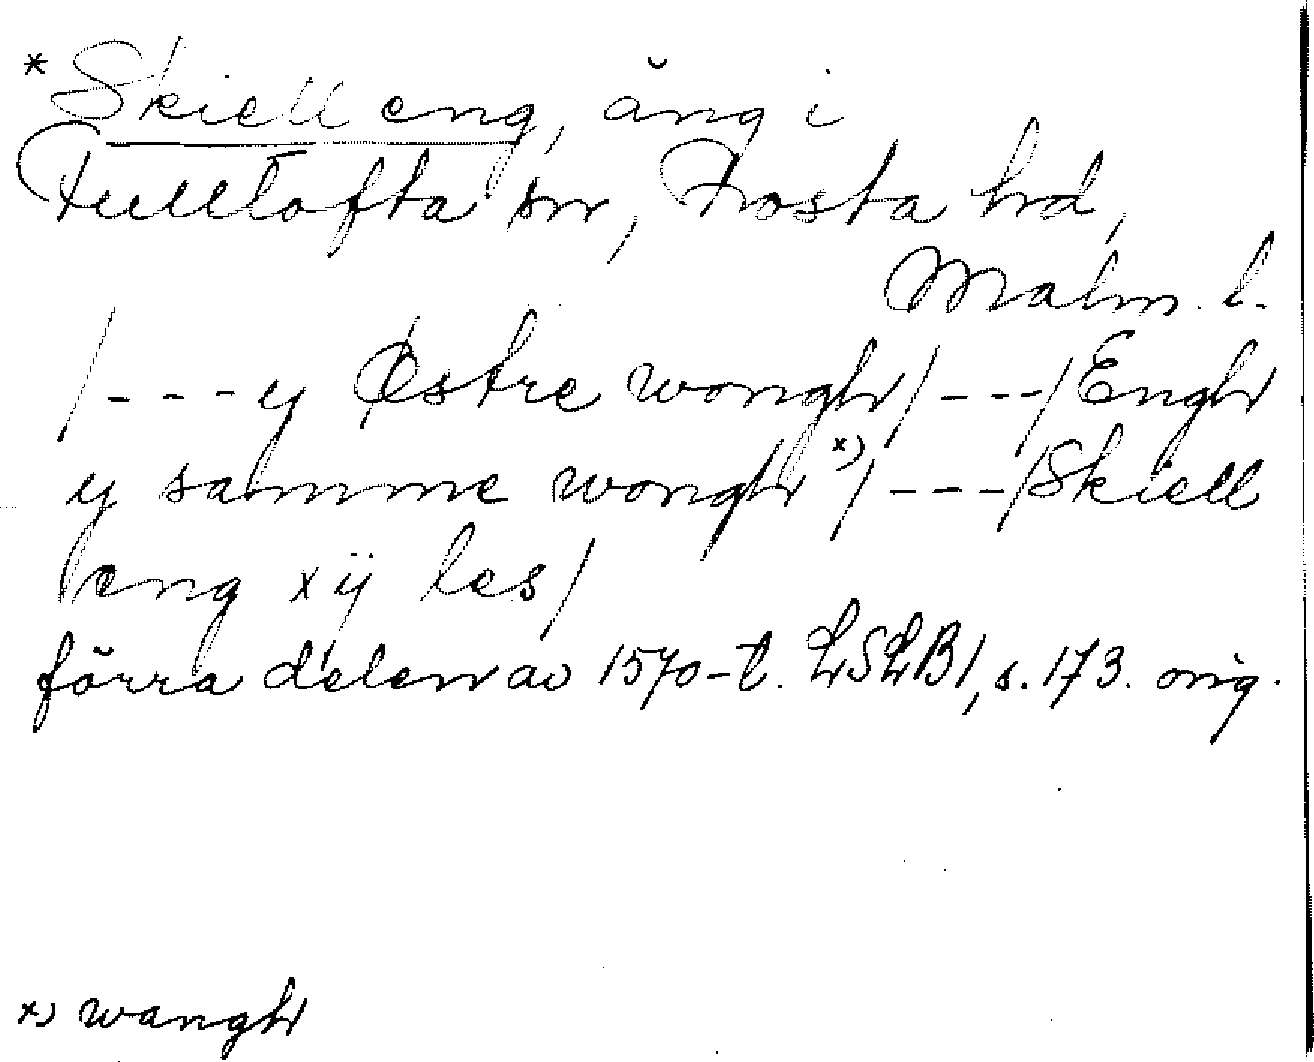 * Skiell eng, äng i
Fulltofta sn, Frosta hd,
Malm. l.
/---y Østre wongh/---/Engh
y samme wongh x)/---/Skiell
eng xij les/
förra delen av 1570-t. LSLB1, s. 173. orig.
x) wangh